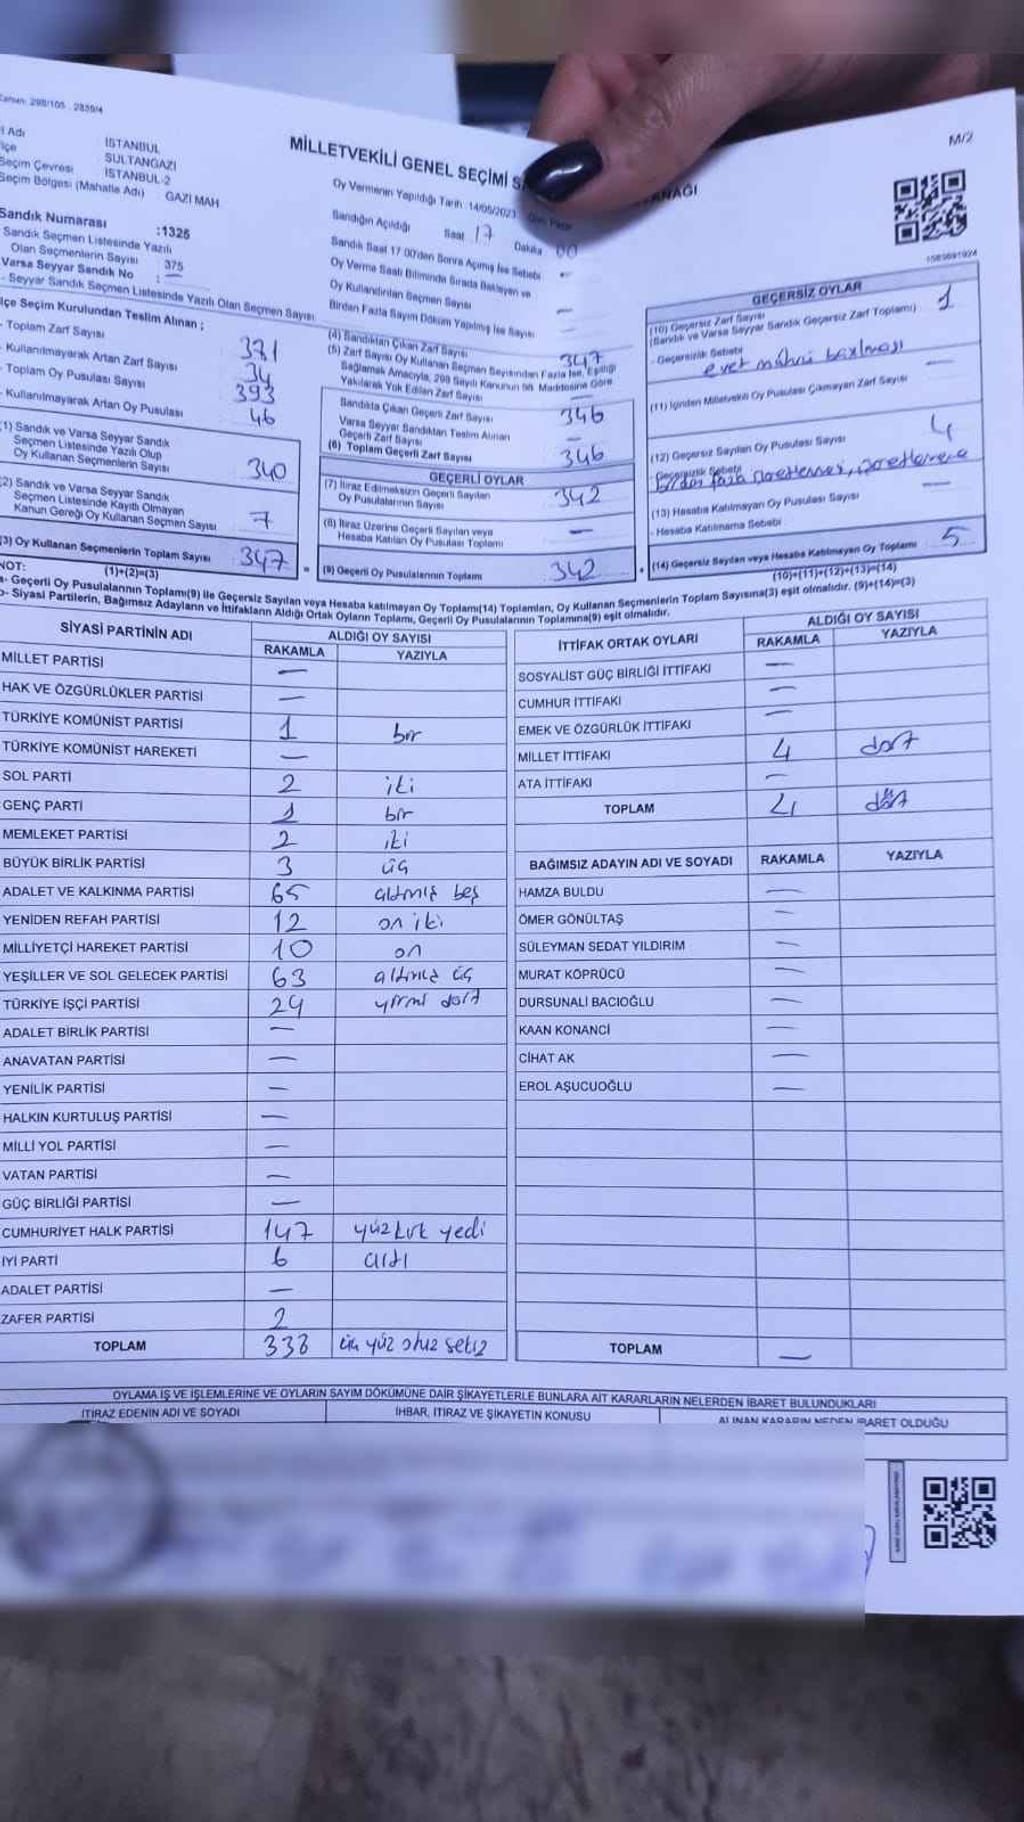 298/105 2839/4
M/2
MİLLETVEKİLİ GENEL SEÇİMİ
İSTANBUL
SULTANGAZİ
Seçim Çevresi İSTANBUL-2
Seçim Bölgesi (Mahalle Adı) GAZİ MAH
Sandık Numarası :1325
Sandık Seçmen Listesinde Yazılı
Olan Seçmenlerin Sayısı 375
Varsa Seyyar Sandık No : —
- Seyyar Sandık Seçmen Listesinde Yazılı Olan Seçmen Sayısı
Seçim Kurulundan Teslim Alınan ;
- Toplam Zarf Sayısı 381
- Kullanılmayarak Artan Zarf Sayısı 34
- Toplam Oy Pusulası Sayısı 393
- Kullanılmayarak Artan Oy Pusulası 46
1) Sandık ve Varsa Seyyar Sandık
Seçmen Listesinde Yazılı Olup
Oy Kullanan Seçmenlerin Sayısı 340
2) Sandık ve Varsa Seyyar Sandık
Seçmen Listesinde Kayıtlı Olmayan
Kanun Gereği Oy Kullanan Seçmen Sayısı 7
(3) Oy Kullanan Seçmenlerin Toplam Sayısı 347
(1)+(2)=(3)
Oy Vermenin Yapıldığı Tarih :14/05/2023
Sandığın Açıldığı Saat 17 Dakika 00
Sandık Saat 17.00'den Sonra Açılmış İse Sebebi —
Oy Verme Saati Bitiminde Sırada Bekleyen ve
Oy Kullandırılan Seçmen Sayısı —
Birden Fazla Sayım Döküm Yapılmış İse Sayısı —
(4) Sandıktan Çıkan Zarf Sayısı 347
(5) Zarf Sayısı Oy Kullanan Seçmen Sayısından Fazla İse, Eşitliği
Sağlamak Amacıyla, 298 Sayılı Kanunun 98. Maddesine Göre
Yakılarak Yok Edilen Zarf Sayısı —
Sandıkta Çıkan Geçerli Zarf Sayısı 346
Varsa Seyyar Sandıktan Teslim Alınan
Geçerli Zarf Sayısı —
(6) Toplam Geçerli Zarf Sayısı 346
GEÇERLİ OYLAR
(7) İtiraz Edilmeksizin Geçerli Sayılan
Oy Pusulalarının Sayısı 342
(8) İtiraz Üzerine Geçerli Sayılan veya
Hesaba Katılan Oy Pusulası Toplamı —
(9) Geçerli Oy Pusulalarının Toplamı 342
1589691924
GEÇERSİZ OYLAR
(10) Geçersiz Zarf Sayısı
(Sandık ve Varsa Seyyar Sandık Geçersiz Zarf Toplamı) 1
- Geçersizlik Sebebi
evet mührü basılması
(11) İçinden Milletvekili Oy Pusulası Çıkmayan Zarf Sayısı —
(12) Geçersiz Sayılan Oy Pusulası Sayısı 4
Geçersizlik Sebebi
Birden fazla
(13) Hesaba Katılmayan Oy Pusulası Sayısı —
- Hesaba Katılmama Sebebi
(14) Geçersiz Sayılan veya Hesaba Katılmayan Oy Toplamı 5
(10)+(11)+(12)+(13)=(14)
NOT:
a- Geçerli Oy Pusulalarının Toplamı(9) ile Geçersiz Sayılan veya Hesaba katılmayan Oy Toplamı(14) Toplamları, Oy Kullanan Seçmenlerin Toplam Sayısına(3) eşit olmalıdır. (9)+(14)=(3)
b- Siyasi Partilerin, Bağımsız Adayların ve İttifakların Aldığı Ortak Oyların Toplamı, Geçerli Oy Pusulalarının Toplamına(9) eşit olmalıdır.
SİYASİ PARTİNİN ADI ALDIĞI OY SAYISI
RAKAMLA YAZIYLA
MİLLET PARTİSİ —
HAK VE ÖZGÜRLÜKLER PARTİSİ —
TÜRKİYE KOMÜNİST PARTİSİ 1 bir
TÜRKİYE KOMÜNİST HAREKETİ —
SOL PARTİ 2 iki
GENÇ PARTİ 1 bir
MEMLEKET PARTİSİ 2 iki
BÜYÜK BİRLİK PARTİSİ 3 üç
ADALET VE KALKINMA PARTİSİ 65 altmış beş
YENİDEN REFAH PARTİSİ 12 on iki
MİLLİYETÇİ HAREKET PARTİSİ 10 on
YEŞİLLER VE SOL GELECEK PARTİSİ 63 altmış üç
TÜRKİYE İŞÇİ PARTİSİ 24 yirmi dört
ADALET BİRLİK PARTİSİ —
ANAVATAN PARTİSİ —
YENİLİK PARTİSİ —
HALKIN KURTULUŞ PARTİSİ —
MİLLİ YOL PARTİSİ —
VATAN PARTİSİ —
GÜÇ BİRLİĞİ PARTİSİ —
CUMHURİYET HALK PARTİSİ 147 yüz kırk yedi
İYİ PARTİ 6 altı
ADALET PARTİSİ —
ZAFER PARTİSİ 2
TOPLAM 338 üç yüz otuz sekiz
İTTİFAK ORTAK OYLARI ALDIĞI OY SAYISI
RAKAMLA YAZIYLA
SOSYALİST GÜÇ BİRLİĞİ İTTİFAKI —
CUMHUR İTTİFAKI —
EMEK VE ÖZGÜRLÜK İTTİFAKI —
MİLLET İTTİFAKI 4 dört
ATA İTTİFAKI —
TOPLAM 4 dört
BAĞIMSIZ ADAYIN ADI VE SOYADI RAKAMLA YAZIYLA
HAMZA BULDU —
ÖMER GÖNÜLTAŞ —
SÜLEYMAN SEDAT YILDIRIM —
MURAT KÖPRÜCÜ —
DURSUNALİ BACIOĞLU —
KAAN KONANCİ —
CİHAT AK —
EROL AŞUCUOĞLU —
TOPLAM —
OYLAMA İŞ VE İŞLEMLERİNE VE OYLARIN SAYIM DÖKÜMÜNE DAİR ŞİKAYETLERLE BUNLARA AİT KARARLARIN NELERDEN İBARET BULUNDUKLARI
İTİRAZ EDENİN ADI VE SOYADI İHBAR, İTİRAZ VE ŞİKAYETİN KONUSU ALINAN KARARIN NEDEN İBARET OLDUĞU